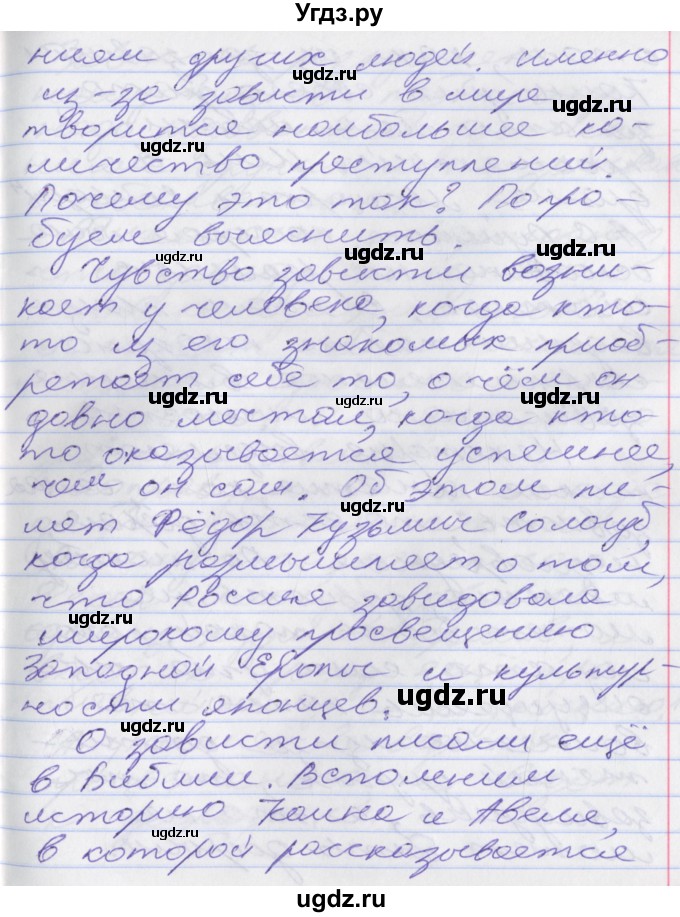 Угдз.ру
нием других людей. Именно
из-за зависти в мире
творится наибольшее ко-
личество преступлений.
Почему это так? Попро-
буем выяснить.
Чувство зависти возни-
кает у человека, когда кто-
то из его знакомых приоб-
ретает себе то, о чём он
давно мечтал, когда кто-
то оказывается успешнее,
чем он сам. Об этом пи-
шет Фёдор Кузьмич Сологуб,
когда размышляет о том,
что Россия завидовала
широкому просвещению
Западной Европы и культур-
ности японцев.
О зависти писали ещё
в Библии. Вспомним
историю Каина и Авеля,
в которой рассказывается
ugdz.ru